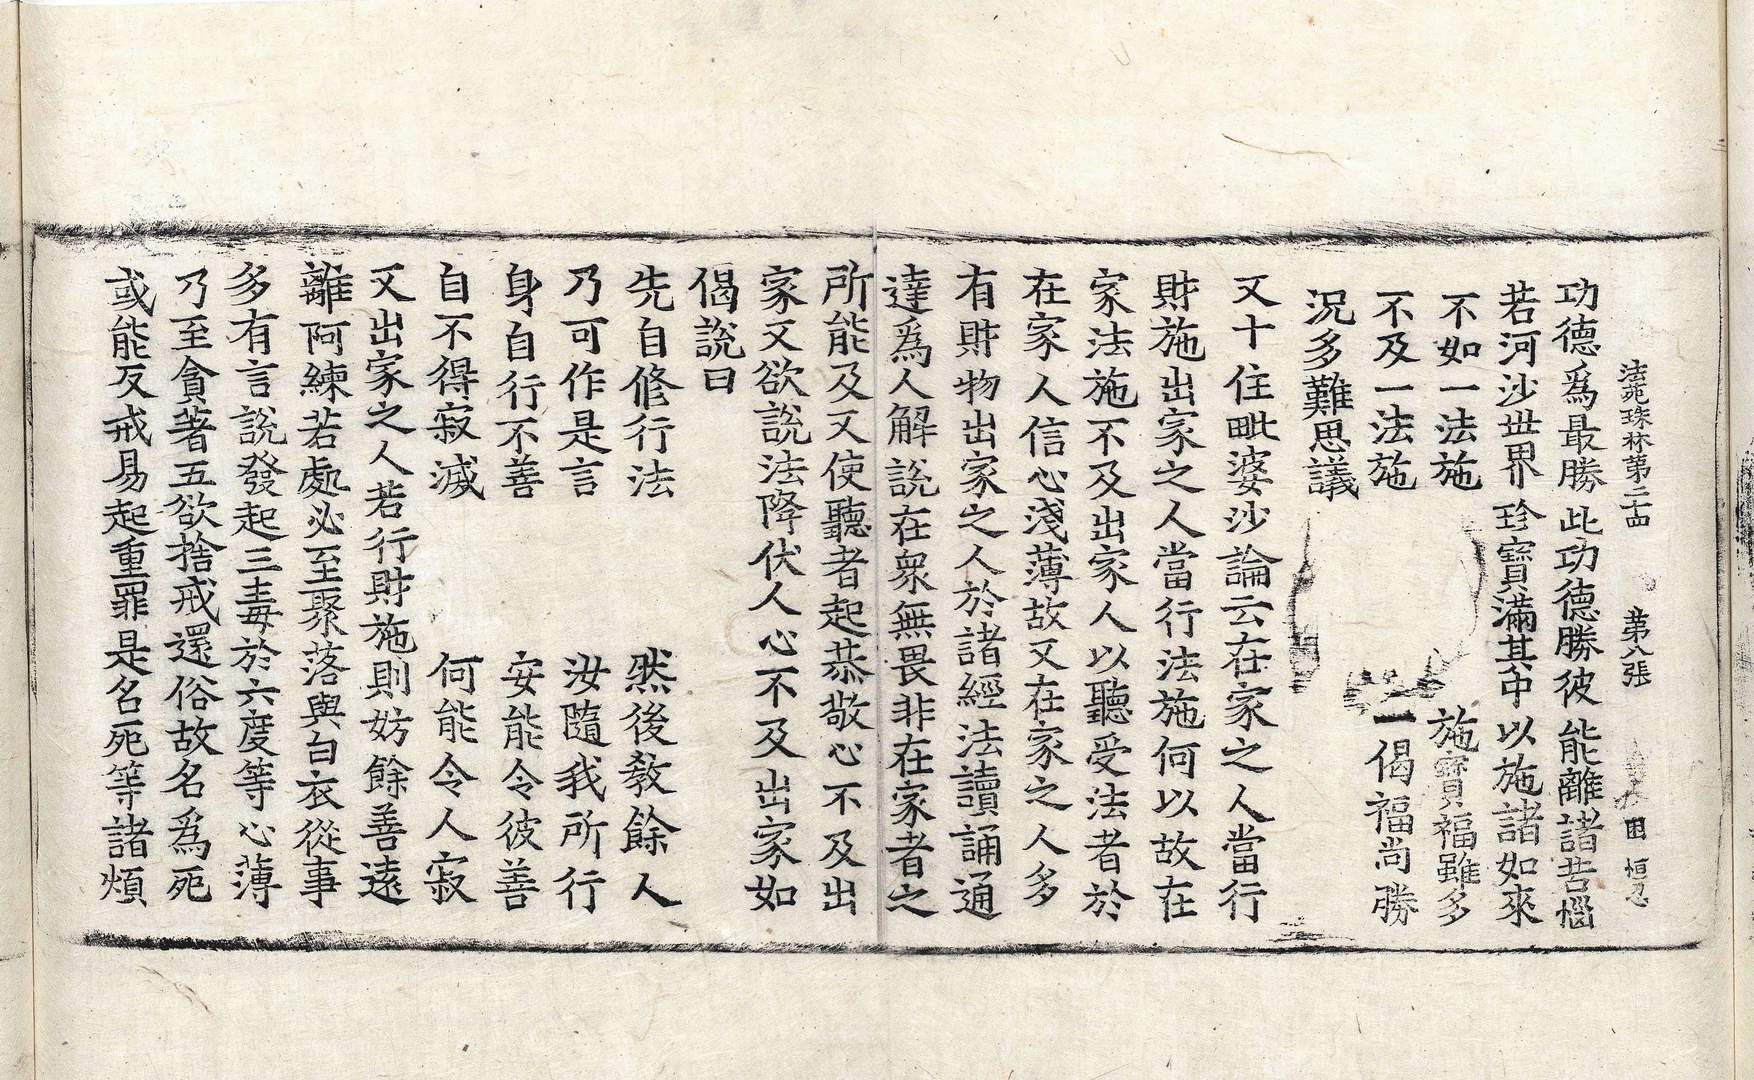 法苑珠林第二十四 第八張 田 恒忍
功德爲最勝此功德勝彼能離諸苦惱
若河沙世界珍寶滿其中以施諸如來
不如一法施 施寶福雖多
不及一法施 一偈福尚勝
況多難思議
又十住毗婆沙論云在家之人當行
財施出家之人當行法施何以故在
家法施不及出家人以聽受法者於
在家人信心淺薄故又在家之人多
有財物出家之人於諸經法讀誦通
達爲人解說在衆無畏非在家者之
所能及又使聽者起恭敬心不及出
家又欲說法降伏人心不及出家如
偈說曰
先自修行法 然後教餘人
乃可作是言 汝隨我所行
身自行不善 安能令彼善
自不得寂滅 何能令人寂
又出家之人若行財施則妨餘善遠
離阿練若處必至聚落與白衣從事
多有言說發起三毒於六度等心薄
乃至貪著五欲捨戒還俗故名爲死
或能反戒易起重罪是名死等諸煩